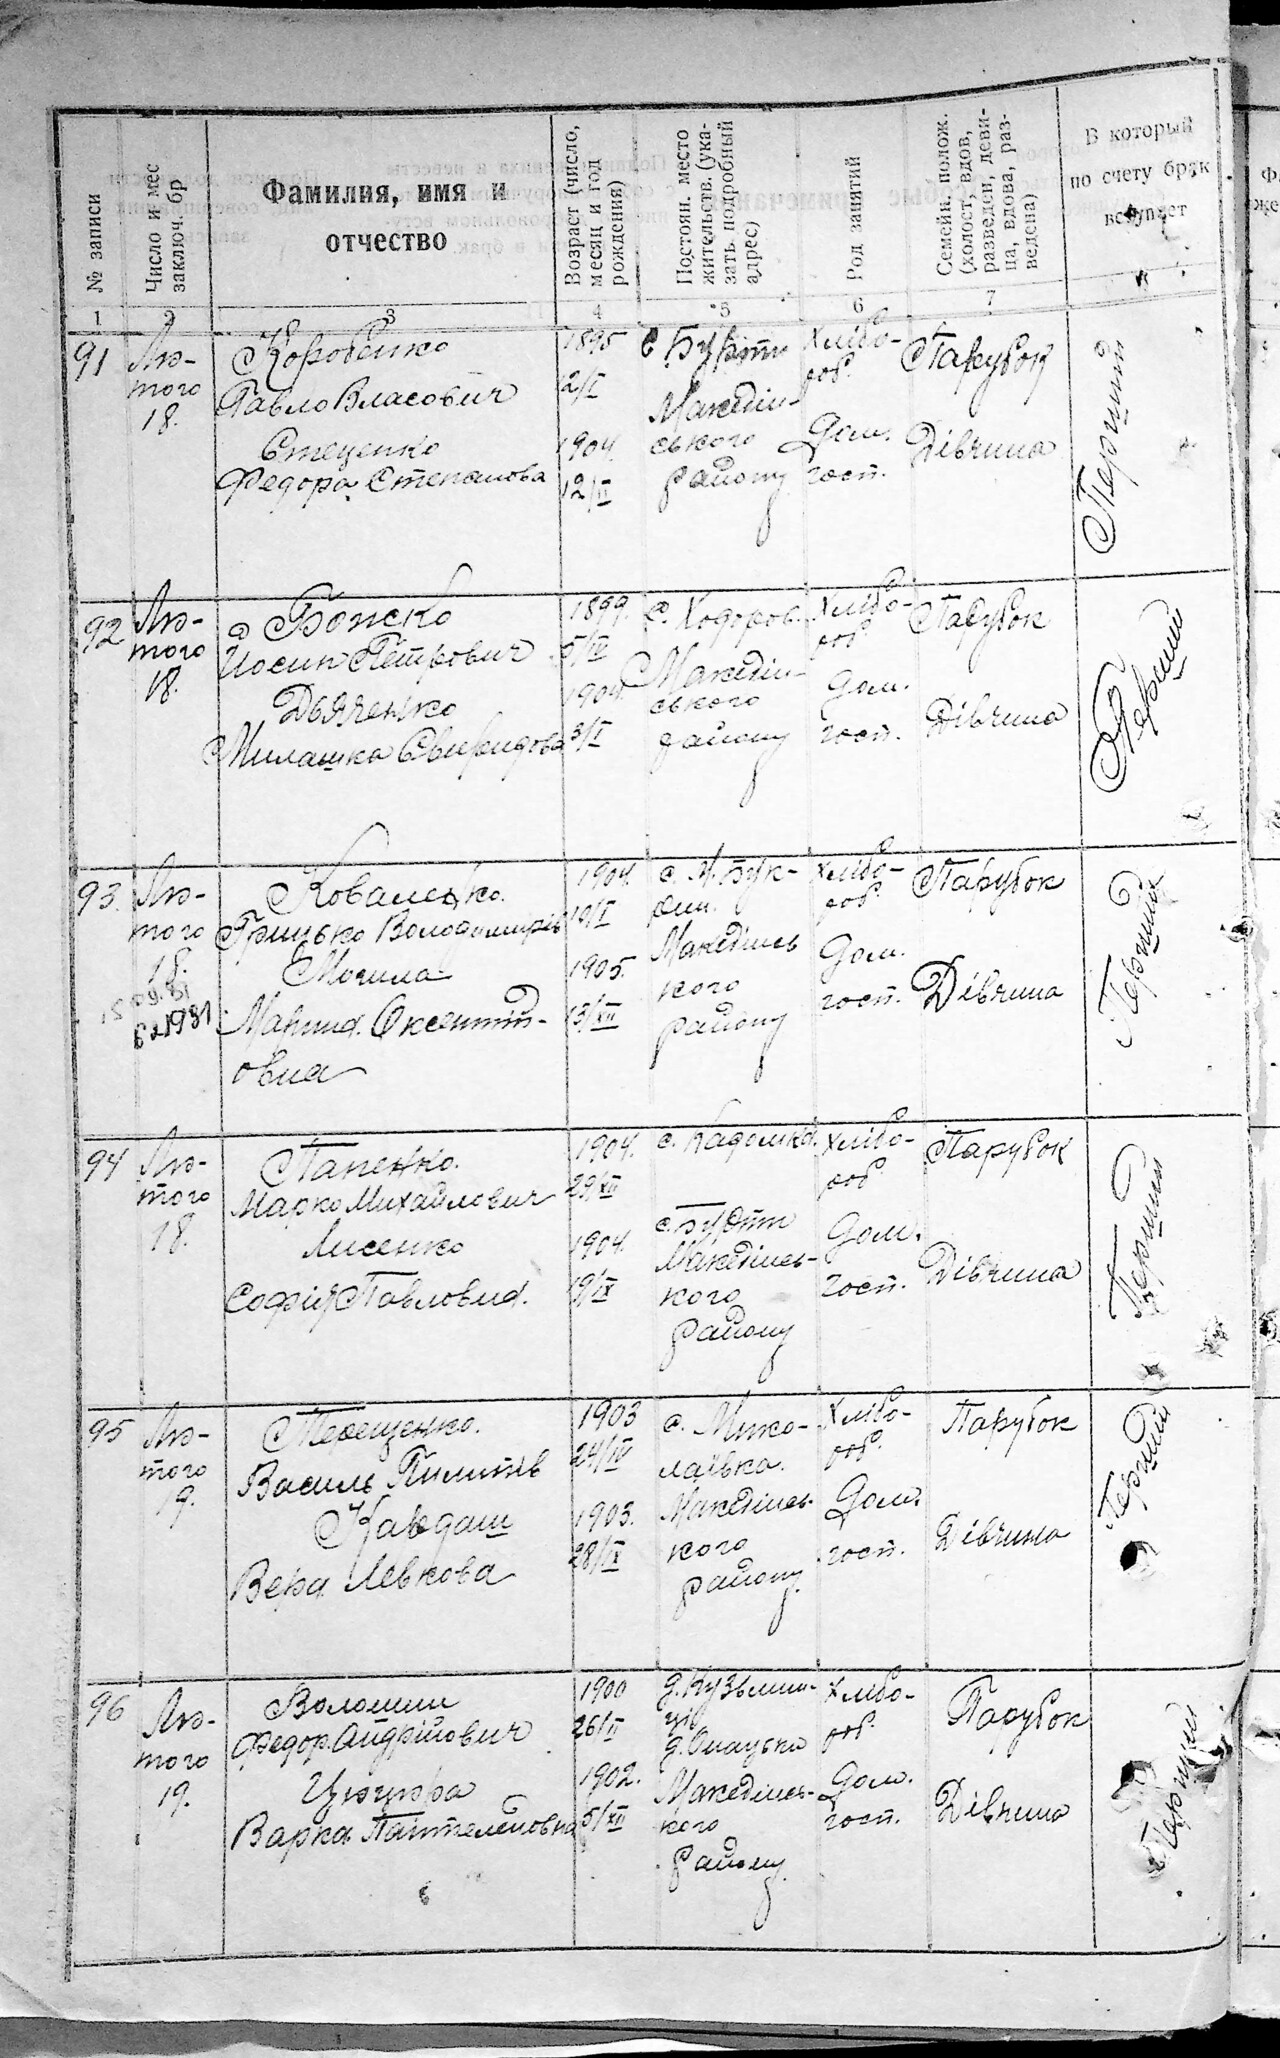 № записи
Число и мес
заключ. бр
Фамилия, имя и
отчество
Возраст (число,
месяц и год
рождения)
Постоян. место
жительств. (ука-
зать подробный
адрес)
Род занятий
Семейн. полож.
(холост, вдов,
разведен, деви-
ца, вдова, раз-
ведена)
В который
по счету брак
вступает
1 2 3 4 5 6 7
91
Лю-
того
18.
Коробенко
Павло Власович
Стеценко
Федора Степанова
1895
12/I
1904.
12/II
с
Македон-
ського
району
Хлібо-
роб.
Дом.
госп.
Парубок
Дівчина
Перший
92
Лю-
того
18.
Божко
Йосип Петрович
Дьяченко
Милашка Свиридова
1899.
5/IV
1904.
3/I
с. Ходоров
Македон-
ського
району
Хлібо-
роб
Дом.
госп.
Парубок
Дівчина
Перший
93.
Лю-
того
18.
Коваленко.
Грицько Володимирів
Могила
Марина Оксентій-
овна
1904.
10/I
1905.
13/XII
с. М. Бук-
рин.
Македонсь
кого
району
Хлібо-
роб.
Дом.
госп.
Парубок
Дівчина
Перший
94
Лю-
того
18.
Папенко.
Марко Михайлович
Лисенко
Софія Павловна.
1904.
29/XII
1904.
19/IX
с. Кадомка.
с.
Македонсь-
кого
району
Хлібо-
роб
Дом.
госп.
Парубок
Дівчина
Перший
95
Лю-
того
19.
Терещенко.
Василь Пилипів
Кавдаш
Вера Левкова
1903
24/IV
1903.
28/IX
с. Мико-
лаївка.
Македонсь-
кого
району.
Хлібо-
роб.
Дом.
госп.
Парубок
Дівчина
Перший
96
Лю-
того
19.
Волошин
Федор Андрійович
Цюцюра
Варка Пантелеймовна
1900
26/II
1902.
5/XII
д. Кузьмин-
ці
Македонсь-
кого
району
Хлібо-
роб.
Дом.
госп.
Парубок
Дівчина
Перший